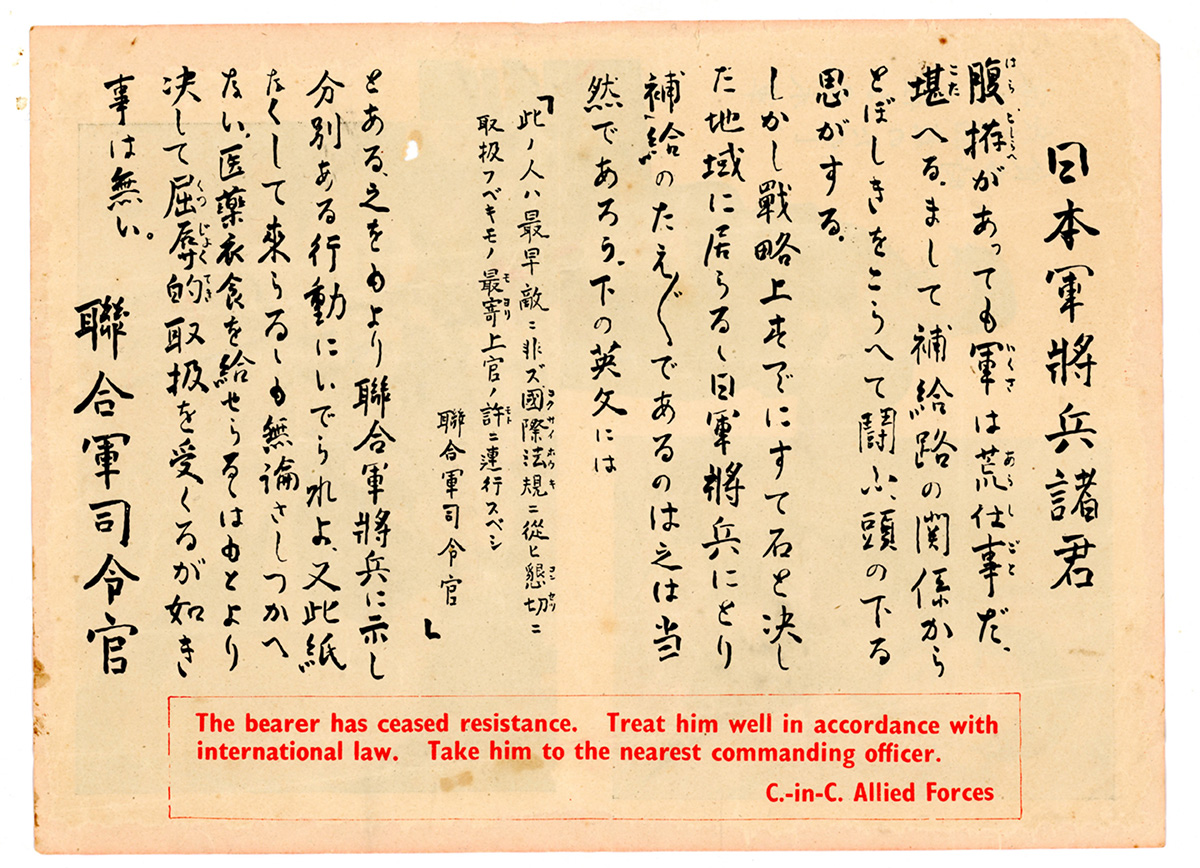 日本軍將兵諸君
はらごしらへ いくさ あらしごと
腹拵があっても軍は荒仕事だ、
こた
堪へる、まして補給路の関係から
とぼしきをこらへて闘ふ、頭の下る
思がする、
しかし戰略上すでにすて石と決し
た地域に居らるゝ日軍將兵にとり
補給のたえ〲であるのは之は当
然であろう、下の英文には
コクサイホウキ コンセツ
「此ノ人ハ最早敵ニ非ズ國際法規ニ從ヒ懇切ニ
モヨリ モト
取扱フベキモノ最寄上官ノ許ニ連行スベシ
聯合軍司令官」
とある、之をもより聯合軍將兵に示し
分別ある行動にいでられよ、又此紙
なくして來らるゝも無論さしつかへ
ない、医藥衣食を給せらるゝはもとより
くつじょくてき
決して屈辱的取扱を受くるが如き
事は無い。
聯合軍司令官
The bearer has ceased resistance. Treat him well in accordance with
international law. Take him to the nearest commanding officer.
C.-in-C. Allied Forces